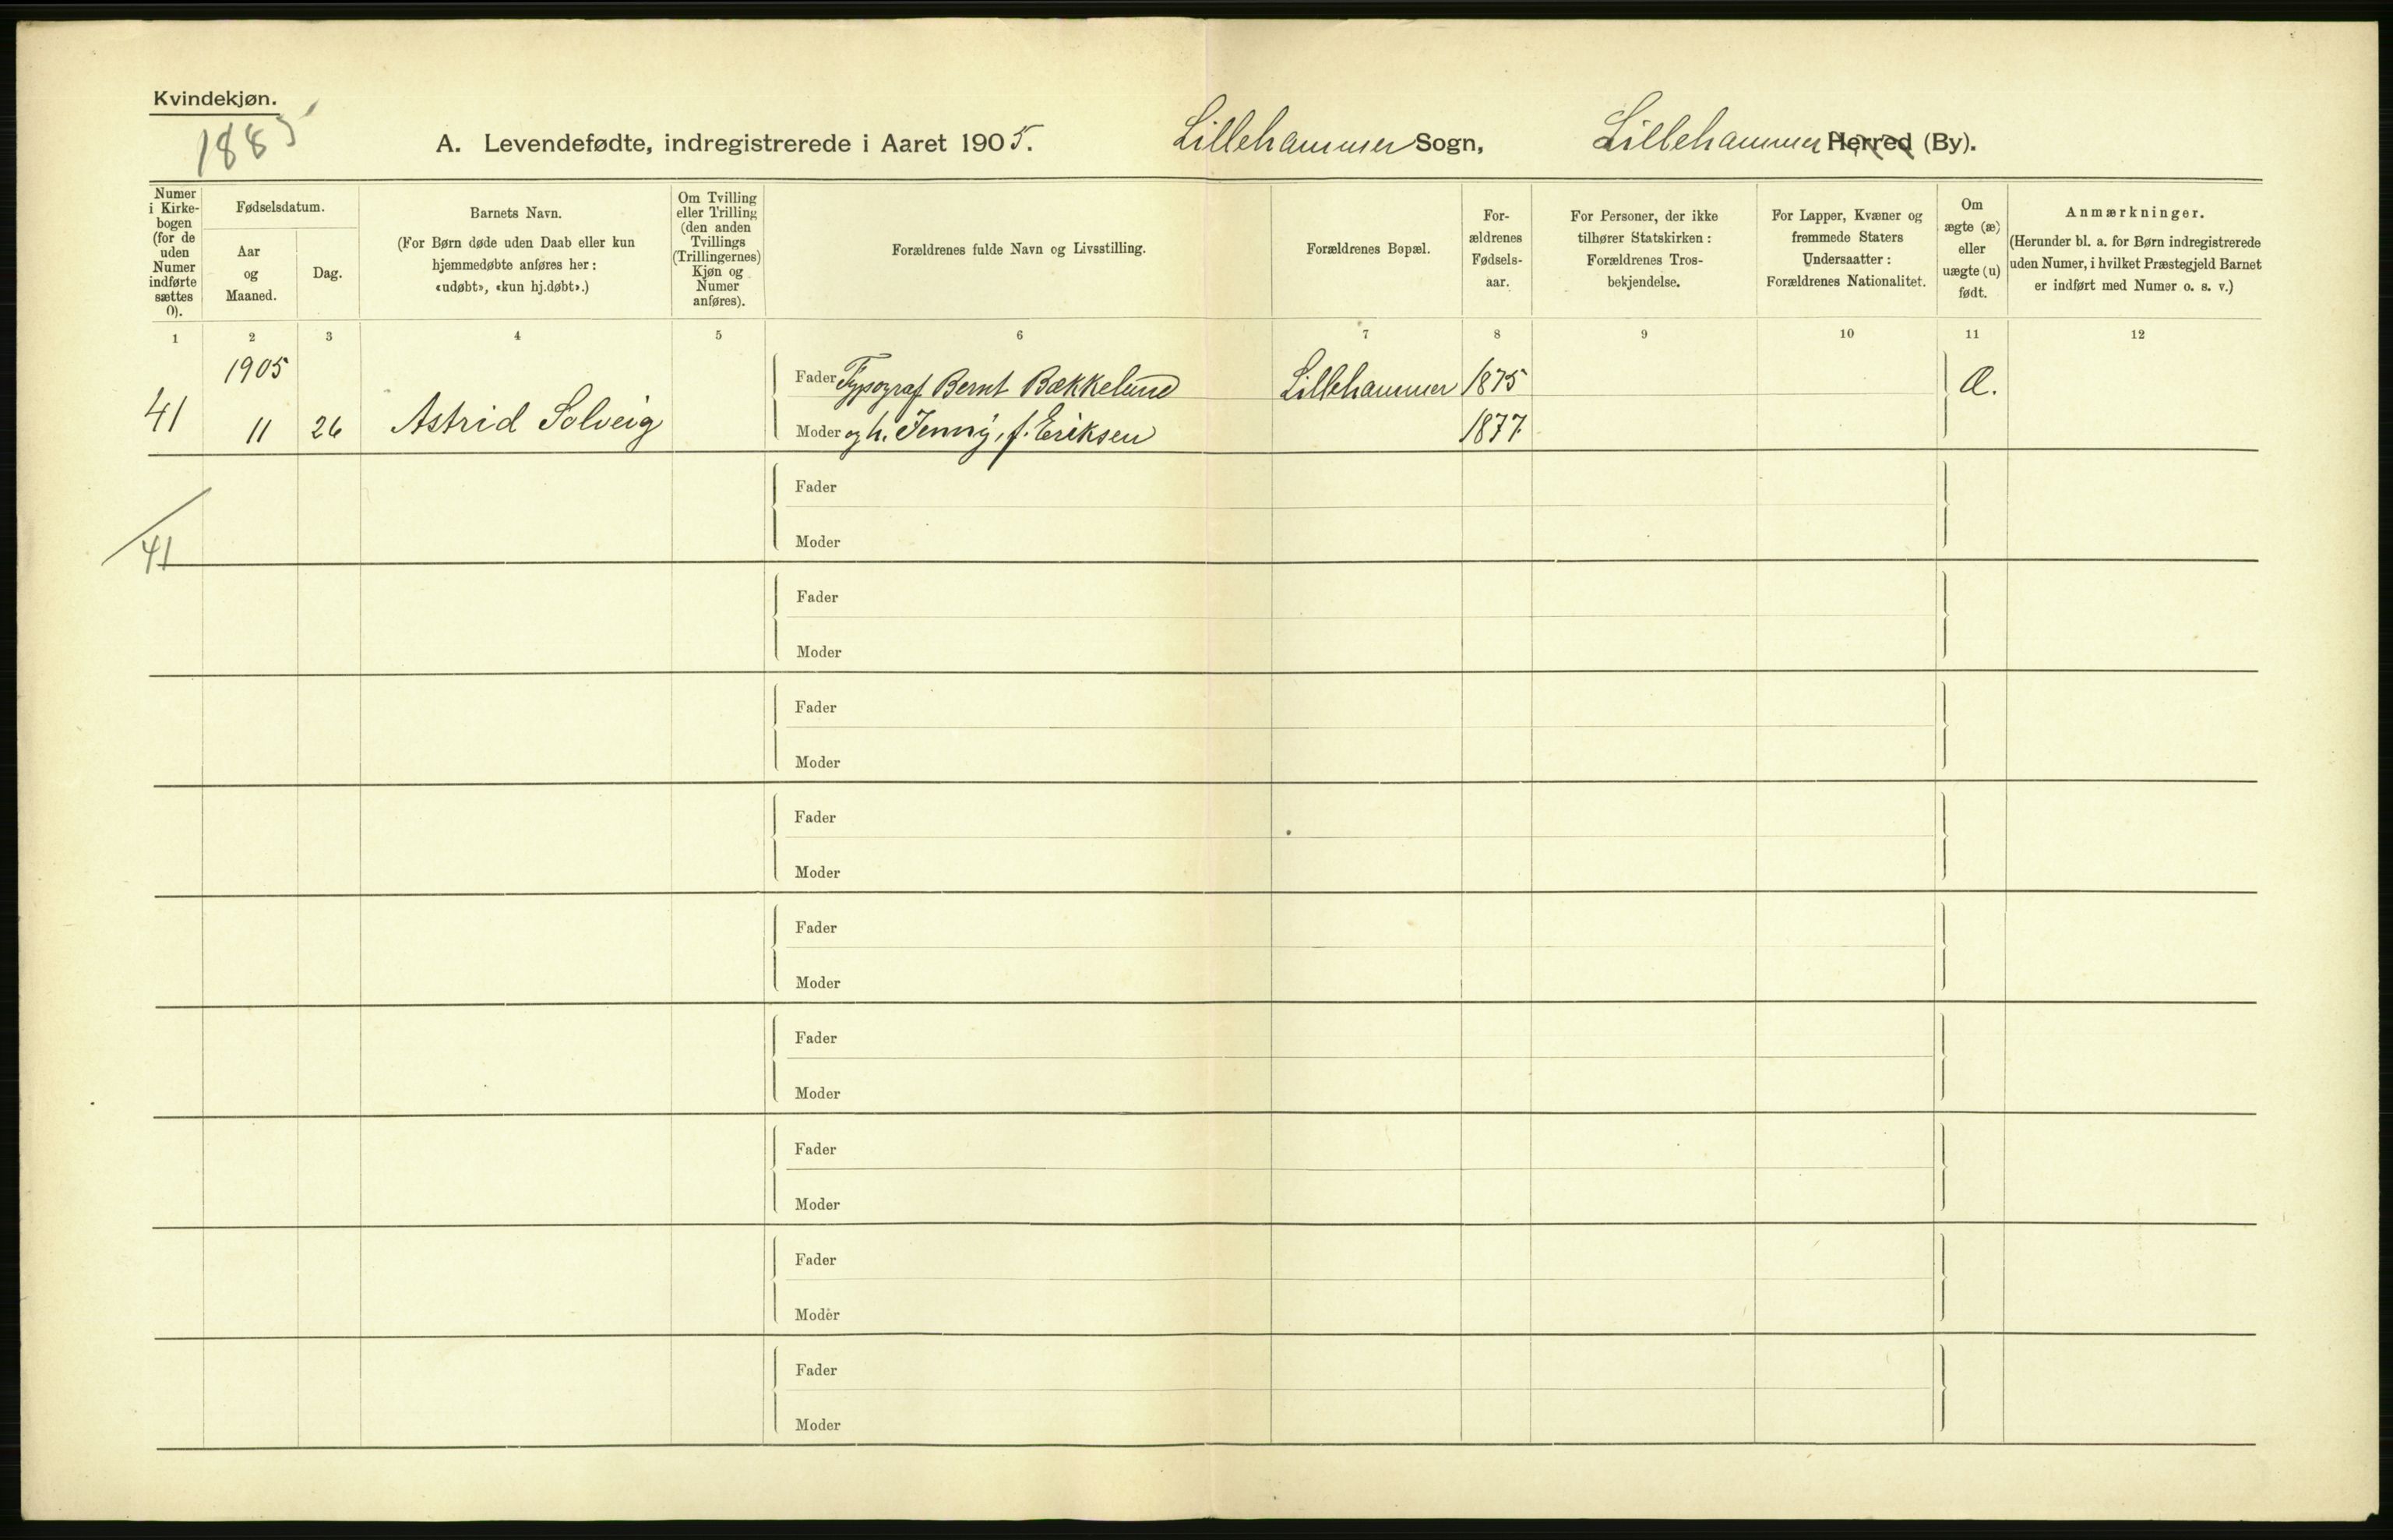 Kvindekjøn.
1885
A. Levendefødte, indregistrerede i Aaret 1905. Lillehammer Sogn, Lillehammer Herred (By).
Numer i Kirke-bogen (for de uden Numer indførte sættes 0).
Fødselsdatum.
Aar og Maaned.
Dag.
Barnets Navn.
(For Børn døde uden Daab eller kun
hjemmedøbte anføres her:
«udøbt», «kun hj.døbt».)
Om Tvilling
eller Trilling
(den anden
Tvillings
(Trillingernes)
Kjøn og
Numer
anføres).
Forældrenes fulde Navn og Livsstilling.
Forældrenes Bopæl.
For-
ældrenes
Fødsels-
aar.
For Personer, der ikke
tilhører Statskirken:
Forældrenes Tros-
bekjendelse.
For Lapper, Kvæner og
fremmede Staters
Undersaatter:
Forældrenes Nationalitet.
Om
ægte (æ)
eller
uægte (u)
født.
Anmærkninger.
(Herunder bl. a. for Børn indregistrerede
uden Numer, i hvilket Præstegjeld Barnet
er indført med Numer o. s. v.)
1 2 3 4 5 6 7 8 9 10 11 12
1905
Fader Typograf Bernt Bækkelund Lillehammer 1875 Æ.
41 11 26 Astrid Solveig
Moder og h. Jenny, f. Eriksen 1877
Fader
41
Moder
Fader
Moder
Fader
Moder
Fader
Moder
Fader
Moder
Fader
Moder
Fader
Moder
Fader
Moder
Fader
Moder